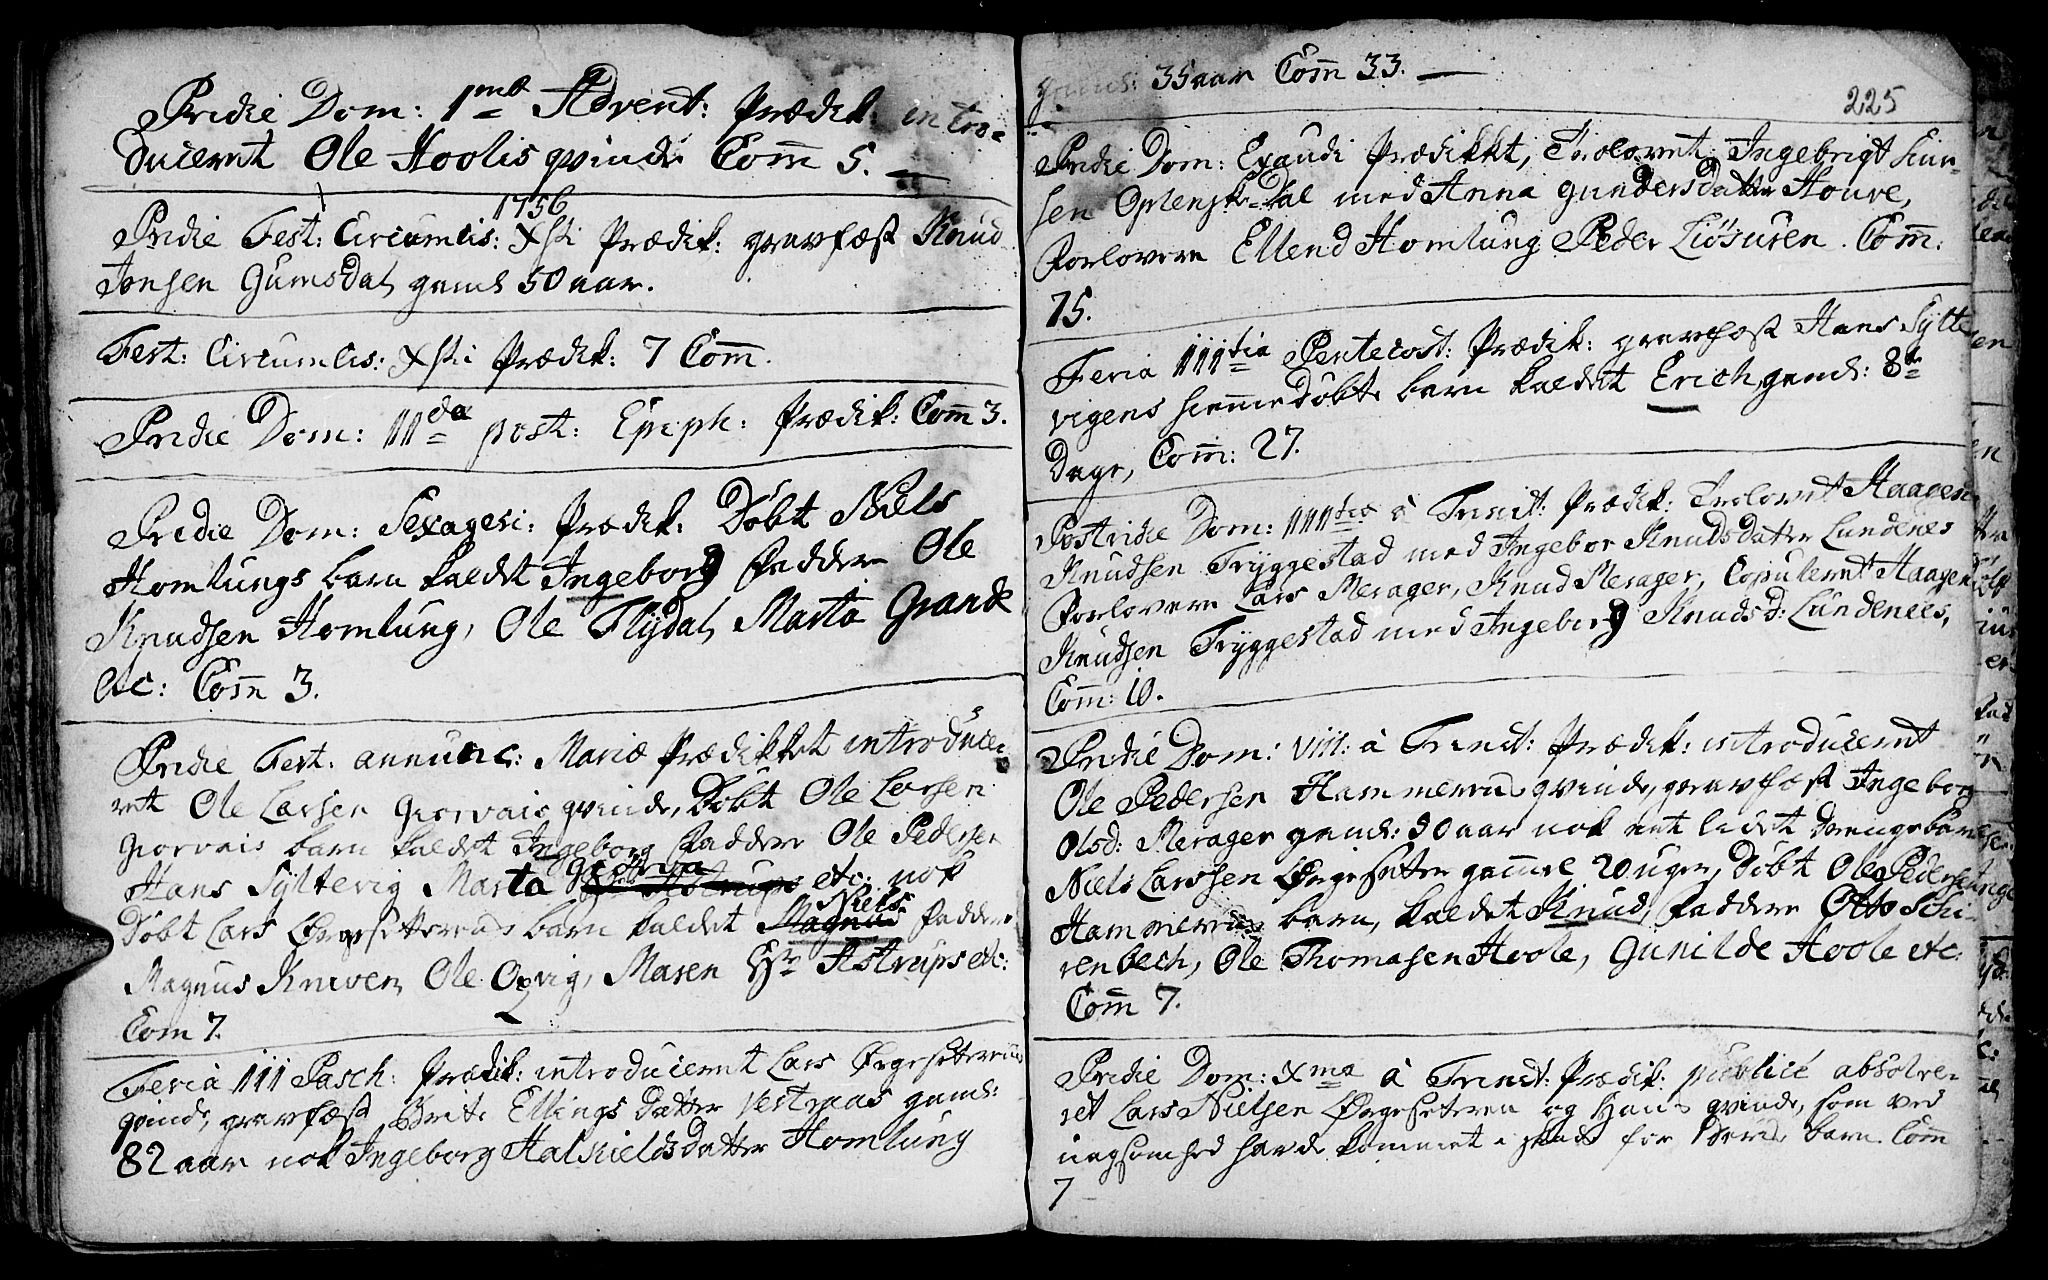 Pridie Dom: 1mo Advent: Prædik: intro=
duceret Ole Hoolis qvinde Com̄ 5.
1756
Pridie Fest: Circumcis: Xsti Prædik: gravfæst Knud
Jonsen Gumsdal gaml 50 aar.
Fest: Circumcis: Xsti Prædik: 7 Com̄.
Pridie Dom: IIda post: Epiph: Prædik: Com̄ 3.
Pridie Dom: Sexagesi: Prædik: Døbt Niels
Homlungs barn kaldet Ingeborg Faddere Ole
Knudsen Homlung, Ole Flÿdal, Marta Grande
etc: Com̄ 3.
Pridie Fest: annunc: Mariæ Prædikket introduce-
ret Ole Larsen Giorvais qvinde, Døbt Ole Larsen
Giorvais barn kaldet Ingeborg Faddere Ole Pedersen
Hans Sÿltevig Marta Giørva etc: nok
Døbt Lars Ørgesetterens barn kaldet Magnus Niels Faddere
Magnus Kneven, Ole Opvig, Maren Hr Astrups etc:
Com 7.
Feria III Pasch: Prædik: introduceret Lars Ørgeseterens
qvinde, gravfæst Brite Ellings datter Vestraas gaml:
82 aar nok Ingeborg Halkieldsdatter Homlung
gaml: 35 aar Com̄ 33.
225
Pridie Dom: Exaudi Prædikket, Trolovet Ingebrigt
sen Oplenskedal med Anna Gundersdatter Houre,
Forlovere Ellend Homlung Peder Liøsuren. Com̄:
75.
Feria IIItia Pentecost: Prædik: gravfæst Hans Sÿlte
vigens hiemmedøbte barn kaldet Erich, gaml: 8te
Dage, Com̄: 27.
Postridie Dom: IIItia à Trinit: Prædik: Trolovet Haagen
Knudsen Trÿggestad med Ingebor Knudsdatter Lundenes
Forlovere Lars Merager, Knud Merager, Copuleret Haagen
Knudsen Trÿggestad med Ingeborg Knudsd: Lundenes,
Com̄: 10.
Pridie Dom: VIII: à Trinit: Prædik: introduceret
Ole Pedersen Hammerens qvinde, gravfæst Ingeborg
Olsd: Merager gaml: 30 aar nok et lidet Drengebarn
Niels Larssen Ørgesetter gammel 20 uger, Døbt Ole Pedersen
Hammerens barn, kaldet Knud, Faddere Otto Schi-
renbech, Ole Thomasen Hoole, Gunilde Hoole etc:
Com̄ 7.
Pridie Dom: Xma à Trinit: Prædik: publicè absolve-
ret Lars Nielsen Ørgeseteren og Hans qvinde, som ved
uagsomhed havde kommet i skade for deres barn. Com̄
7